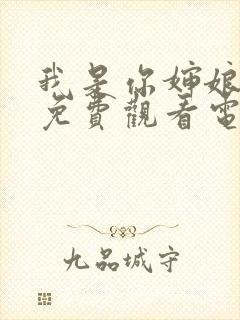 我是你婶娘
免費觀看電
九品城守